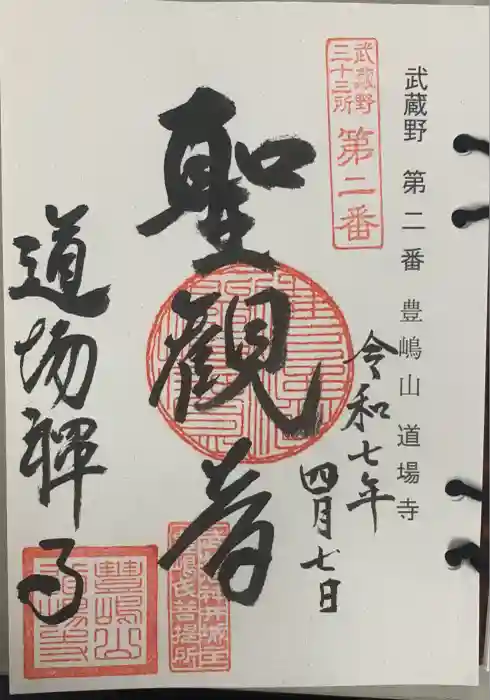 武蔵野 第二番 豊嶋山 道場寺
武蔵野
三十三所
第二番
令和七年
四月七日
聖觀音
道場禅寺
豐嶋山
道場寺